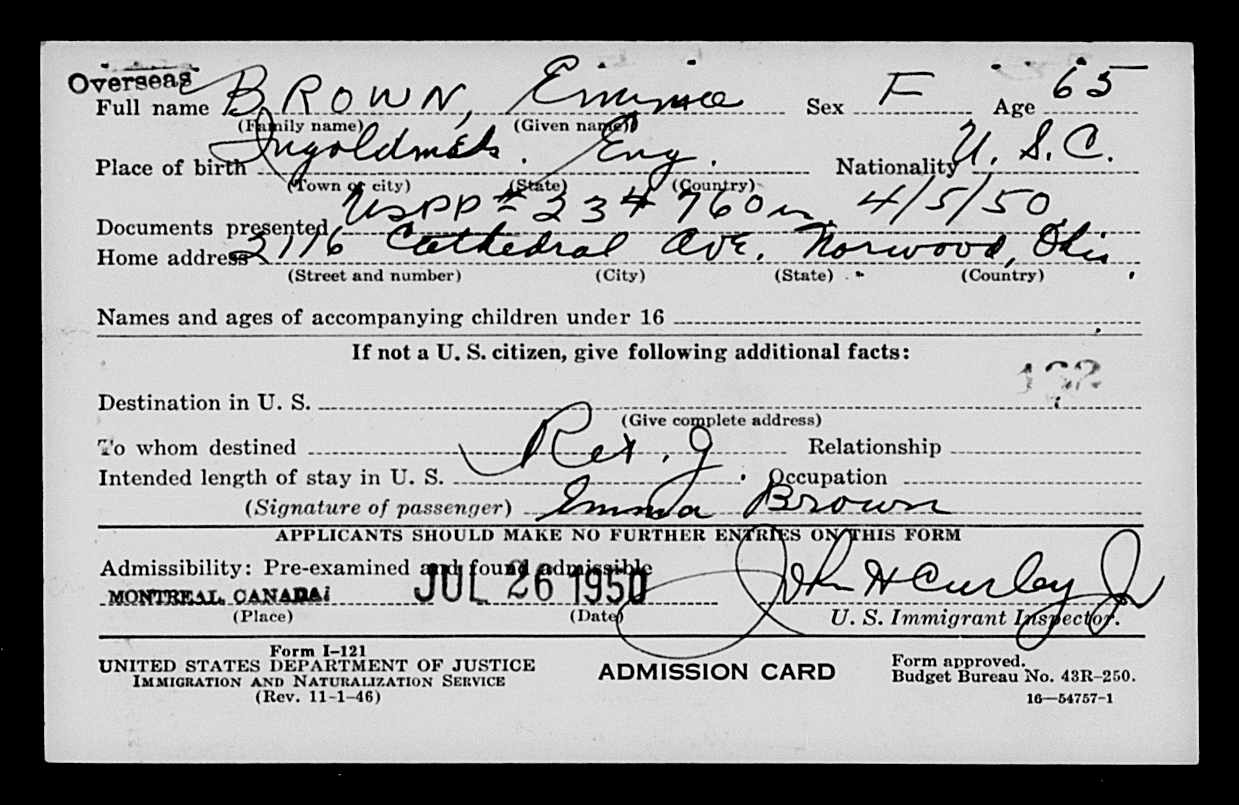 Overseas
Full name BROWN, Emma Sex F Age 65
(Family name) (Given name)
Place of birth Ingoldmells. Eng. Nationality U. S. C.
(Town or city) (State) (Country)
Documents presented USPP # 234760 4/5/50
Home address 2116 Cathedral Ave. Norwood, Ohio
(Street and number) (City) (State) (Country)
Names and ages of accompanying children under 16
If not a U. S. citizen, give following additional facts:
132
Destination in U. S.
(Give complete address)
To whom destined Relationship
Ret. J
Intended length of stay in U. S. Occupation
(Signature of passenger) Emma Brown
APPLICANTS SHOULD MAKE NO FURTHER ENTRIES ON THIS FORM
Admissibility: Pre-examined and found admissible
MONTREAL, CANADA JUL 26 1950 John H Curley Jr
(Place) (Date) U. S. Immigrant Inspector.
Form I-121
UNITED STATES DEPARTMENT OF JUSTICE
IMMIGRATION AND NATURALIZATION SERVICE
(Rev. 11-1-46)
ADMISSION CARD
Form approved.
Budget Bureau No. 43R-250.
16—54757-1